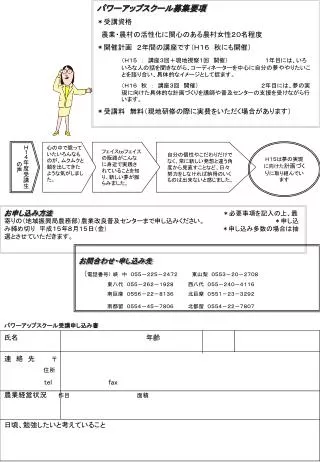 パワーアップスクール募集要項
＊受講資格
農業・農村の活性化に関心のある農村女性20名程度
＊開催計画　2年間の講座です（H16　秋にも開催）
（H15　：　講座3回＋現地視察1回　開催）　1年目には、いろ
いろな人の話を聞きながら、コーディネーターを中心に自分の夢ややりたいこ
とを語り合い、具体的なイメージとして描ます。
（H16　秋　：　講座3回　開催）　2年目には、夢の実
現に向けた具体的な計画づくりを講師や普及センターの支援を受けながら行
います。
＊受講料　無料（現地研修の際に実費をいただく場合があります）
H14年度受講生の声
心の中で眠って
いたいろんなも
のが、ムクムクと
顔を出してきた
ような気がしまし
た。
フェイスtoフェイス
の距離がこんな
に身近で実践さ
れていることを知
り、新しい夢が膨
らみました。
自分の個性やこだわりだけで
なく、常に新しい発想と違う角
度から見直すことなど、日々
努力をしなければ納得のいく
ものは出来ないと感じました。
H15は夢の実現
に向けた計画づく
りに取り組んでい
ます
お申し込み方法　＊必要事項を記入の上、最
寄りの（地域振興局農務部）農業改良普及センターまで申し込みください。　＊申し込
み締め切り　平成15年8月15日（金）　＊申し込み多数の場合は抽
選とさせていただきます。
お問合わせ・申し込み先
（電話番号）峡　中　055－225－2472　東山梨　0553－20－2708
東八代　055－262－1928　西八代　055－240－4116
南巨摩　0556－22－8136　北巨摩　0551－23－3292
南都留　0554－45－7806　北都留　0554－22－7807
パワーアップスクール受講申し込み書
氏名　年齢
連　絡　先　〒
住所
tel　fax
農業経営状況　作目　面積
日頃、勉強したいと考えていること